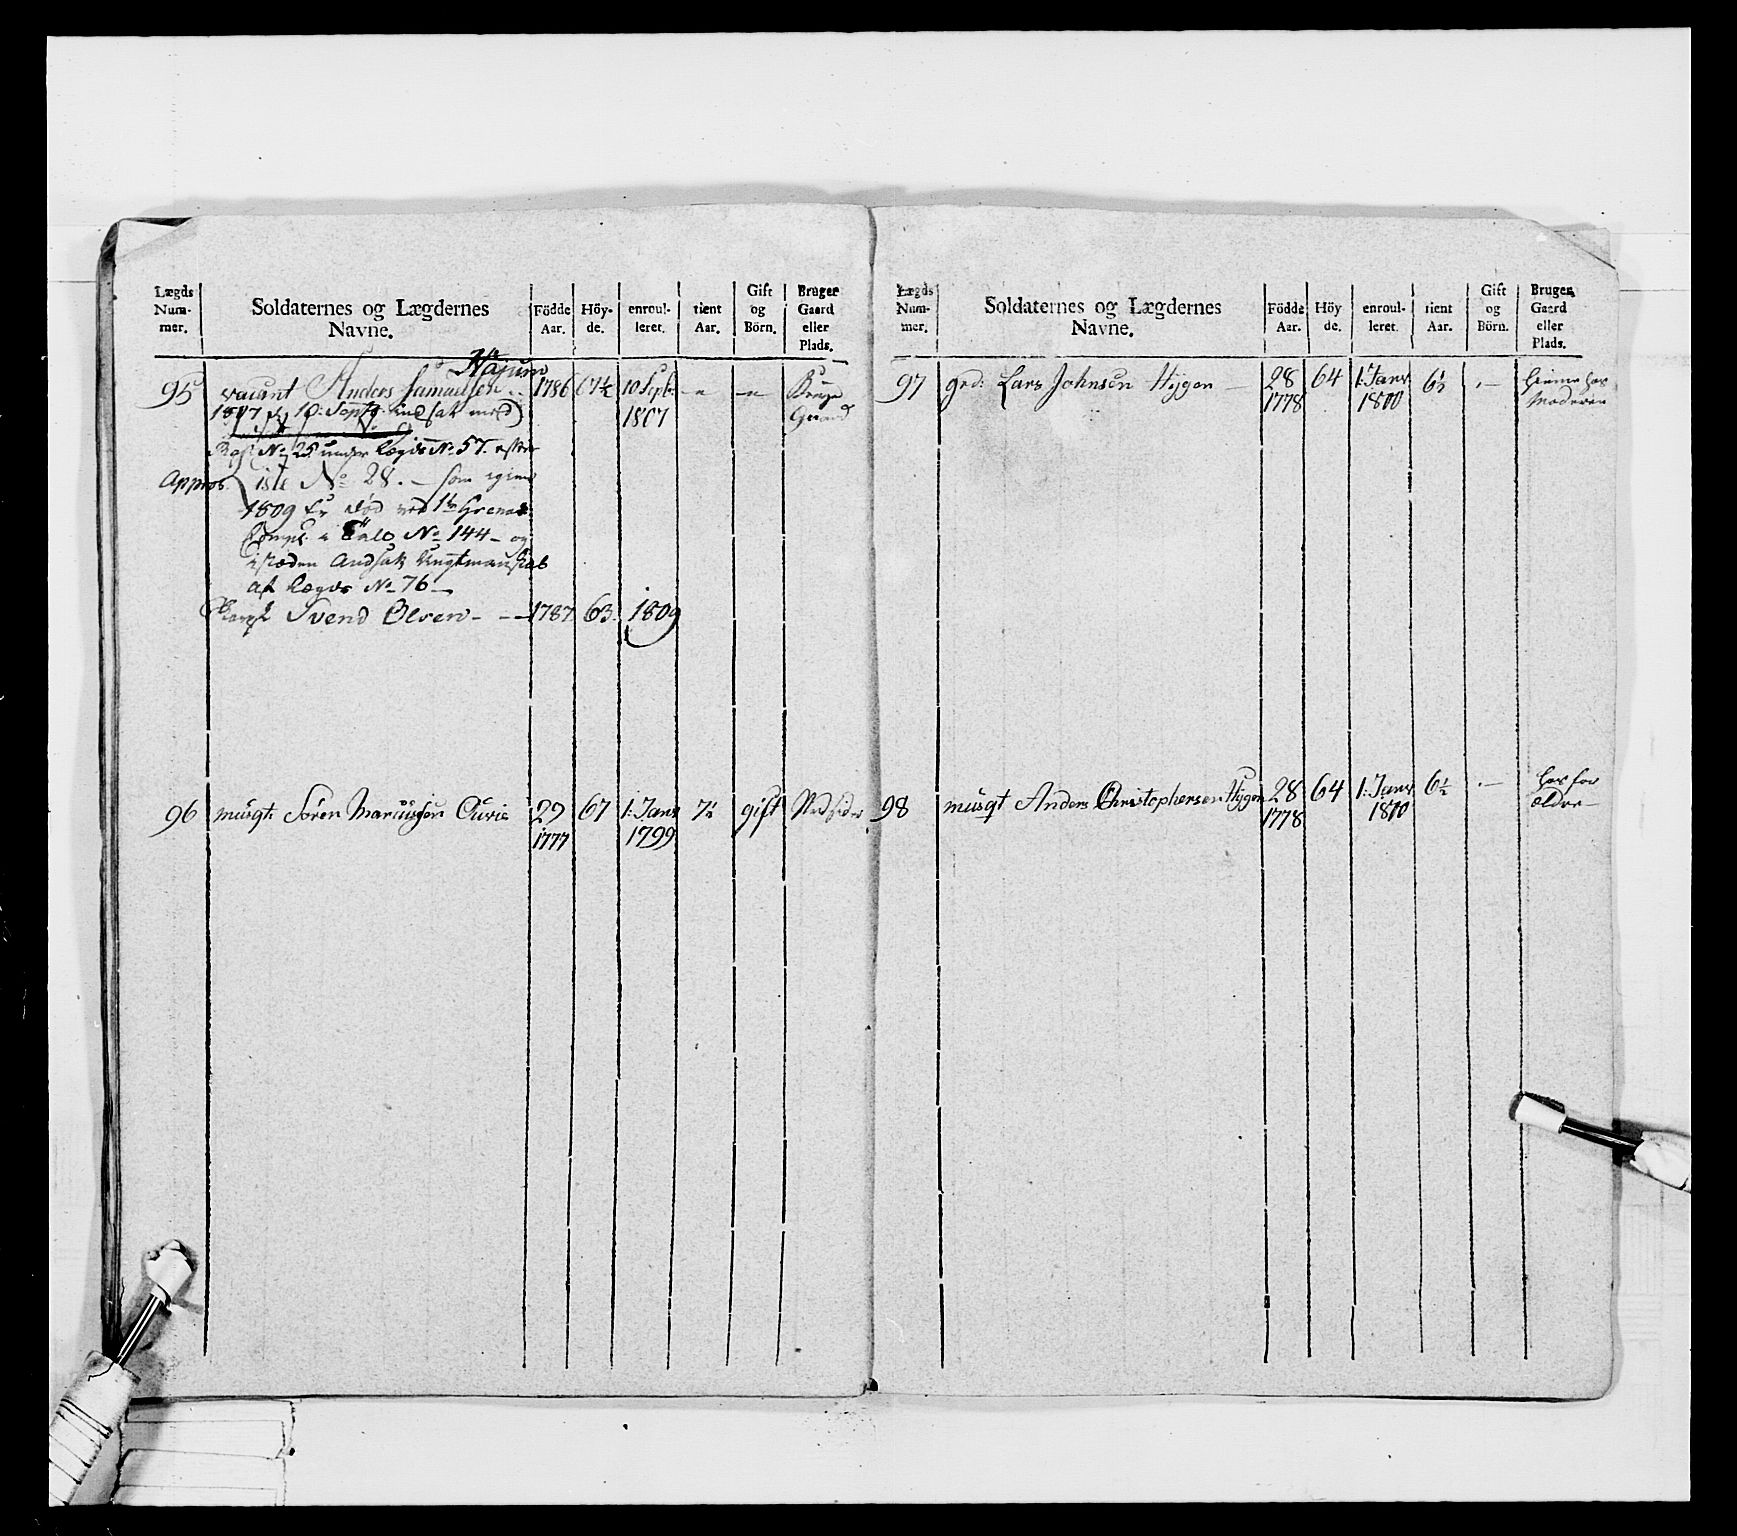 Lægds Num- mer. Soldaternes og Lægdernes Navne. Födde Aar. Höy- de. enroul- leret. tient Aar. Gift og Börn. Bruger Gaard eller Plads.
95 vacant Anders Samuelsen 1786 67½ 10 Septr 1807 Bruger Gaard
1807 d 10: Septr. indsat med
No 25 under Lægds No 57. efter
Appros. liste No 28. – som igien
1809 er død ved 1te Grenad
Comp. No 144 – og
i stæden andsatt Ungtmandskab
af Lægds No 76 –
Svend Olsen – – – 1787 63. 1809
96 musqt: Sören Marcussen 29 1777 67 1: Janr 1799 7½ gift
Lægds Num- mer. Soldaternes og Lægdernes Navne. Födde Aar. Höy de. enroul- leret. tient Aar. Gift og Börn. Bruger Gaard eller Plads.
97 grd: Lars Johnsen Hygen – 28 1778 64 1: Janr 1800 6½ – hiemme hos Moderen
98 musqt Anders Christophersen Hygen 28 1778 64 1: Janr 1800 6½ – hos for ældre –